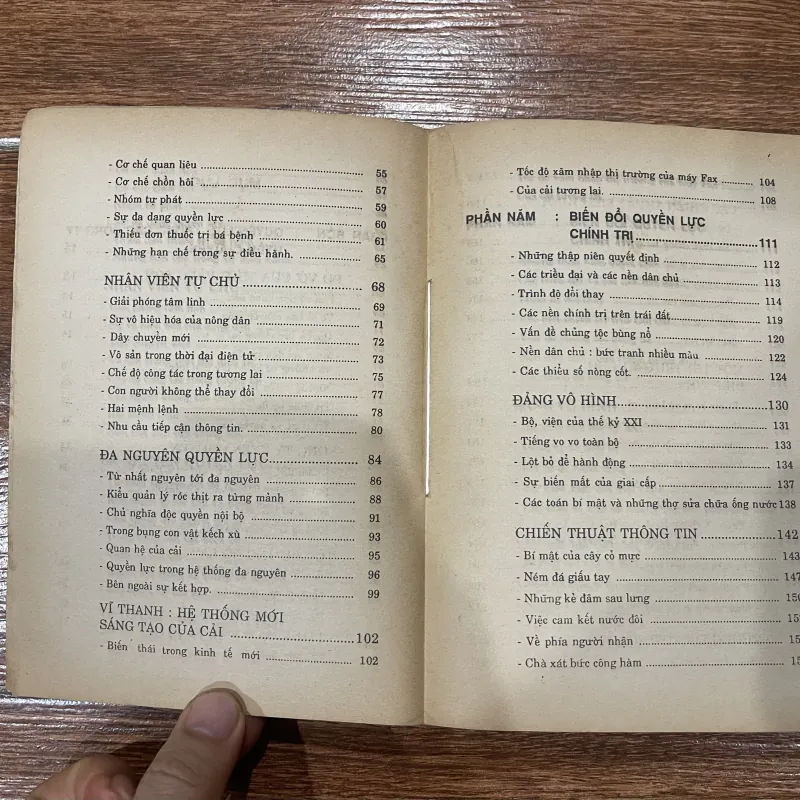 - Cơ chế quan liêu ........ 55
- Cơ chế chồn hôi ........ 57
- Nhóm tự phát ........ 59
- Sự đa dạng quyền lực ........ 60
- Thiếu đơn thuốc trị bá bệnh ........ 61
- Những hạn chế trong sự điều hành. ........ 65
NHÂN VIÊN TỰ CHỦ ........ 68
- Giải phóng tâm linh ........ 69
- Sự vô hiệu hóa của nông dân ........ 71
- Dây chuyền mới ........ 72
- Vô sản trong thời đại điện tử ........ 73
- Chế độ công tác trong tương lai ........ 75
- Con người không thể thay đổi ........ 77
- Hai mệnh lệnh ........ 78
- Nhu cầu tiếp cận thông tin. ........ 80
ĐA NGUYÊN QUYỀN LỰC ........ 84
- Từ nhất nguyên tới đa nguyên ........ 86
- Kiểu quản lý róc thịt ra từng mảnh ........ 88
- Chủ nghĩa độc quyền nội bộ ........ 91
- Trong bụng con vật kếch xù ........ 93
- Quan hệ của cải ........ 95
- Quyền lực trong hệ thống đa nguyên ........ 96
- Bên ngoài sự kết hợp. ........ 99
VĨ THANH : HỆ THỐNG MỚI
SÁNG TẠO CỦA CẢI ........ 102
- Biến thái trong kinh tế mới ........ 102
- Tốc độ xâm nhập thị trường của máy Fax ........ 104
- Của cải tương lai. ........ 108
PHẦN NĂM : BIẾN ĐỔI QUYỀN LỰC
CHÍNH TRỊ ........ 111
- Những thập niên quyết định ........ 112
- Các triều đại và các nền dân chủ ........ 113
- Trình độ đổi thay ........ 114
- Các nền chính trị trên trái đất ........ 119
- Vấn đề chủng tộc bùng nổ ........ 120
- Nền dân chủ : bức tranh nhiều màu ........ 122
- Các thiểu số nòng cốt. ........ 124
ĐẢNG VÔ HÌNH ........ 130
- Bộ, viện của thế kỷ XXI ........ 131
- Tiếng vo vo toàn bộ ........ 133
- Lột bỏ để hành động ........ 134
- Sự biến mất của giai cấp ........ 137
- Các toán bí mật và những thợ sửa chữa ống nước 138
CHIẾN THUẬT THÔNG TIN ........ 142
- Bí mật của cây cỏ mực ........ 143
- Ném đá giấu tay ........ 147
- Những kẻ đâm sau lưng ........ 150
- Việc cam kết nước đôi ........ 15
- Về phía người nhận ........ 15
- Chà xát bức công hàm ........ 15